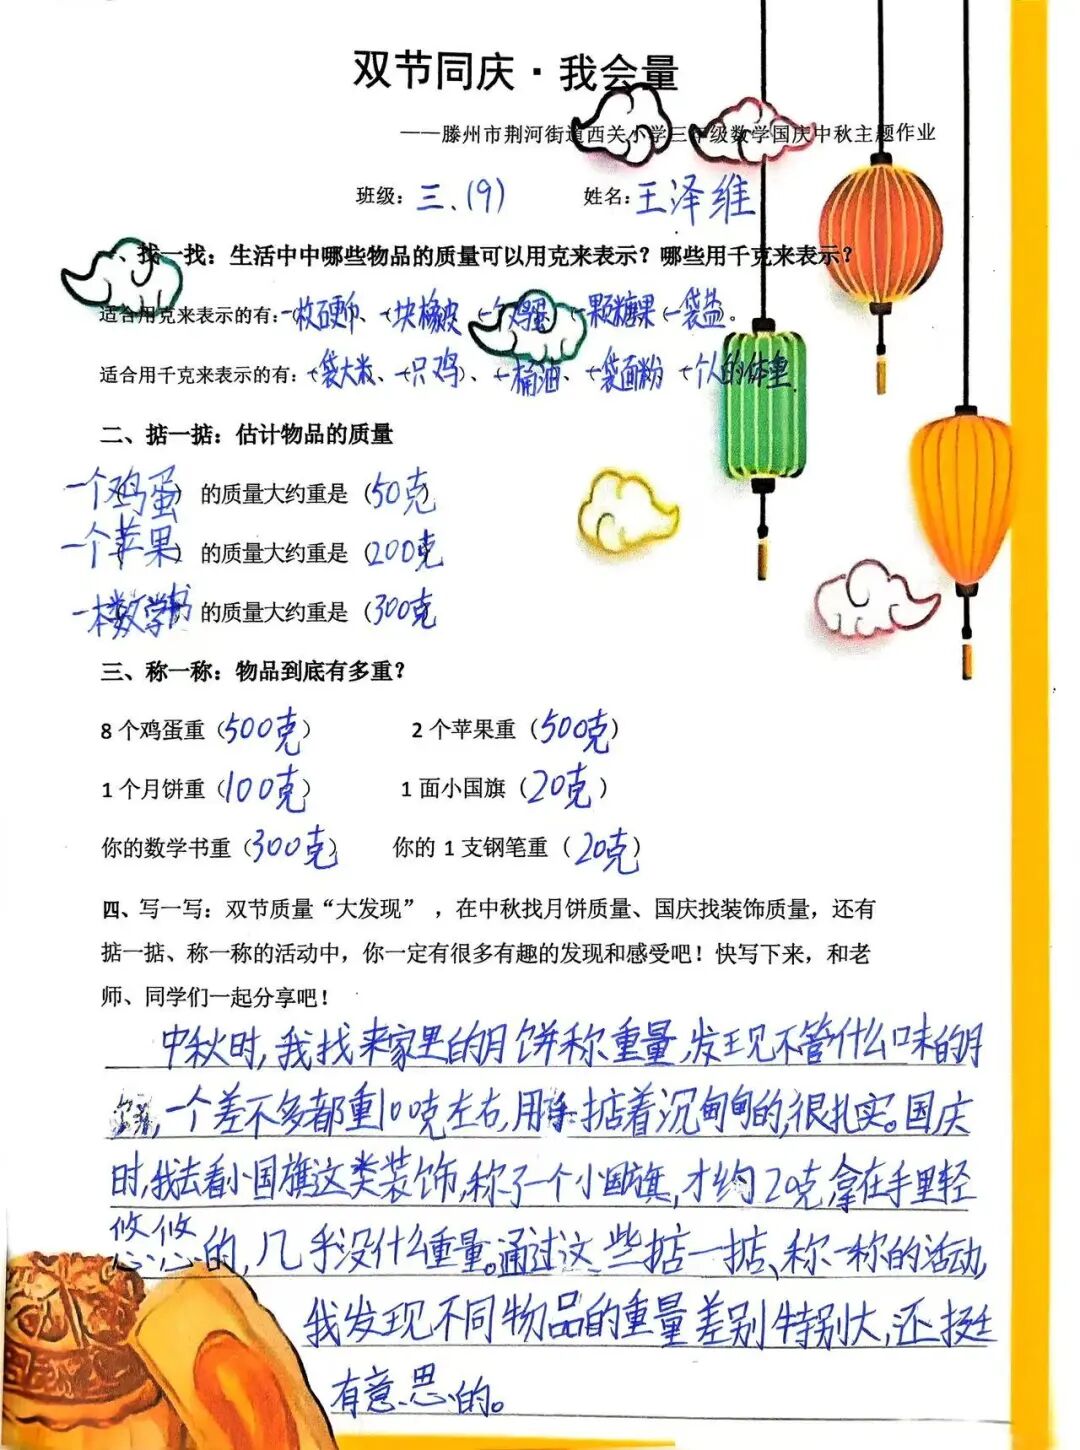 双节同庆·我会量
——滕州市荆河街道西关小学三年级数学国庆中秋主题作业
班级：三.(9) 姓名：王泽维
、找一找：生活中中哪些物品的质量可以用克来表示？哪些用千克来表示？
适合用克来表示的有：(一枚硬币、(一块橡皮 (一个鸡蛋、(一颗糖果 (一袋盐)。
适合用千克来表示的有：(一袋大米、(一只鸡)、(一桶油、(一袋面粉 (一个人的体重
二、掂一掂：估计物品的质量
一个鸡蛋) 的质量大约重是 (50克)
一个苹果) 的质量大约重是 (200克
一本数学书 的质量大约重是 (300克
三、称一称：物品到底有多重？
8 个鸡蛋重（500克） 2 个苹果重（500克）
1 个月饼重（100克） 1 面小国旗（20克）
你的数学书重（300克） 你的 1 支钢笔重（20克）
四、写一写：双节质量“大发现”，在中秋找月饼质量、国庆找装饰质量，还有
掂一掂、称一称的活动中，你一定有很多有趣的发现和感受吧！快写下来，和老
师、同学们一起分享吧！
中秋时,我找来家里的月饼称重量,发现不管什么口味的月
,一个差不多都重100克左右,用手掂着沉甸甸的,很扎实。国庆
时,我去看小国旗这类装饰,称了一个小国旗,才约20克,拿在手里轻
悠悠的,几乎没什么重量。通过这些掂一掂、称一称的活动,
我发现不同物品的重量差别特别大,还挺
有意思的。